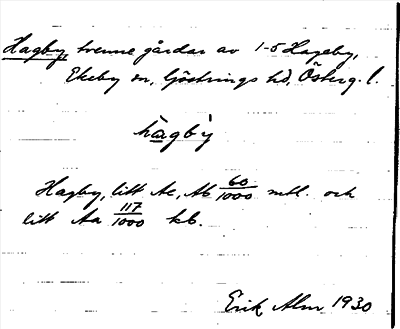 Hagby, tvenne gårdar av 1-5 Hageby,
Ekeby sn, Göstrings hd, Österg. l.
hàgbỳ
Hagby, litt Ac, Ab 60/1000 mtl. och
litt Aa 117/1000 kb.
Erik Alm 1930